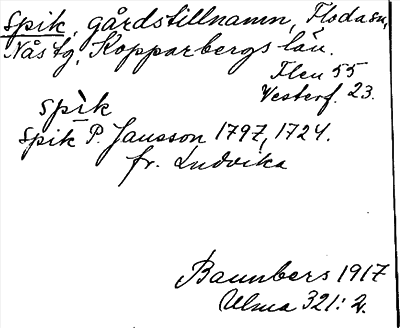 Spik, gårdstillnamn, Floda sn,
Nås tg, Kopparbergs län.
Flen 55
Vesterf. 23.
spik
Spik P. Jansson 1797, 1724.
fr. Ludvika
Baunbers 1917
Ulma 321: 2.